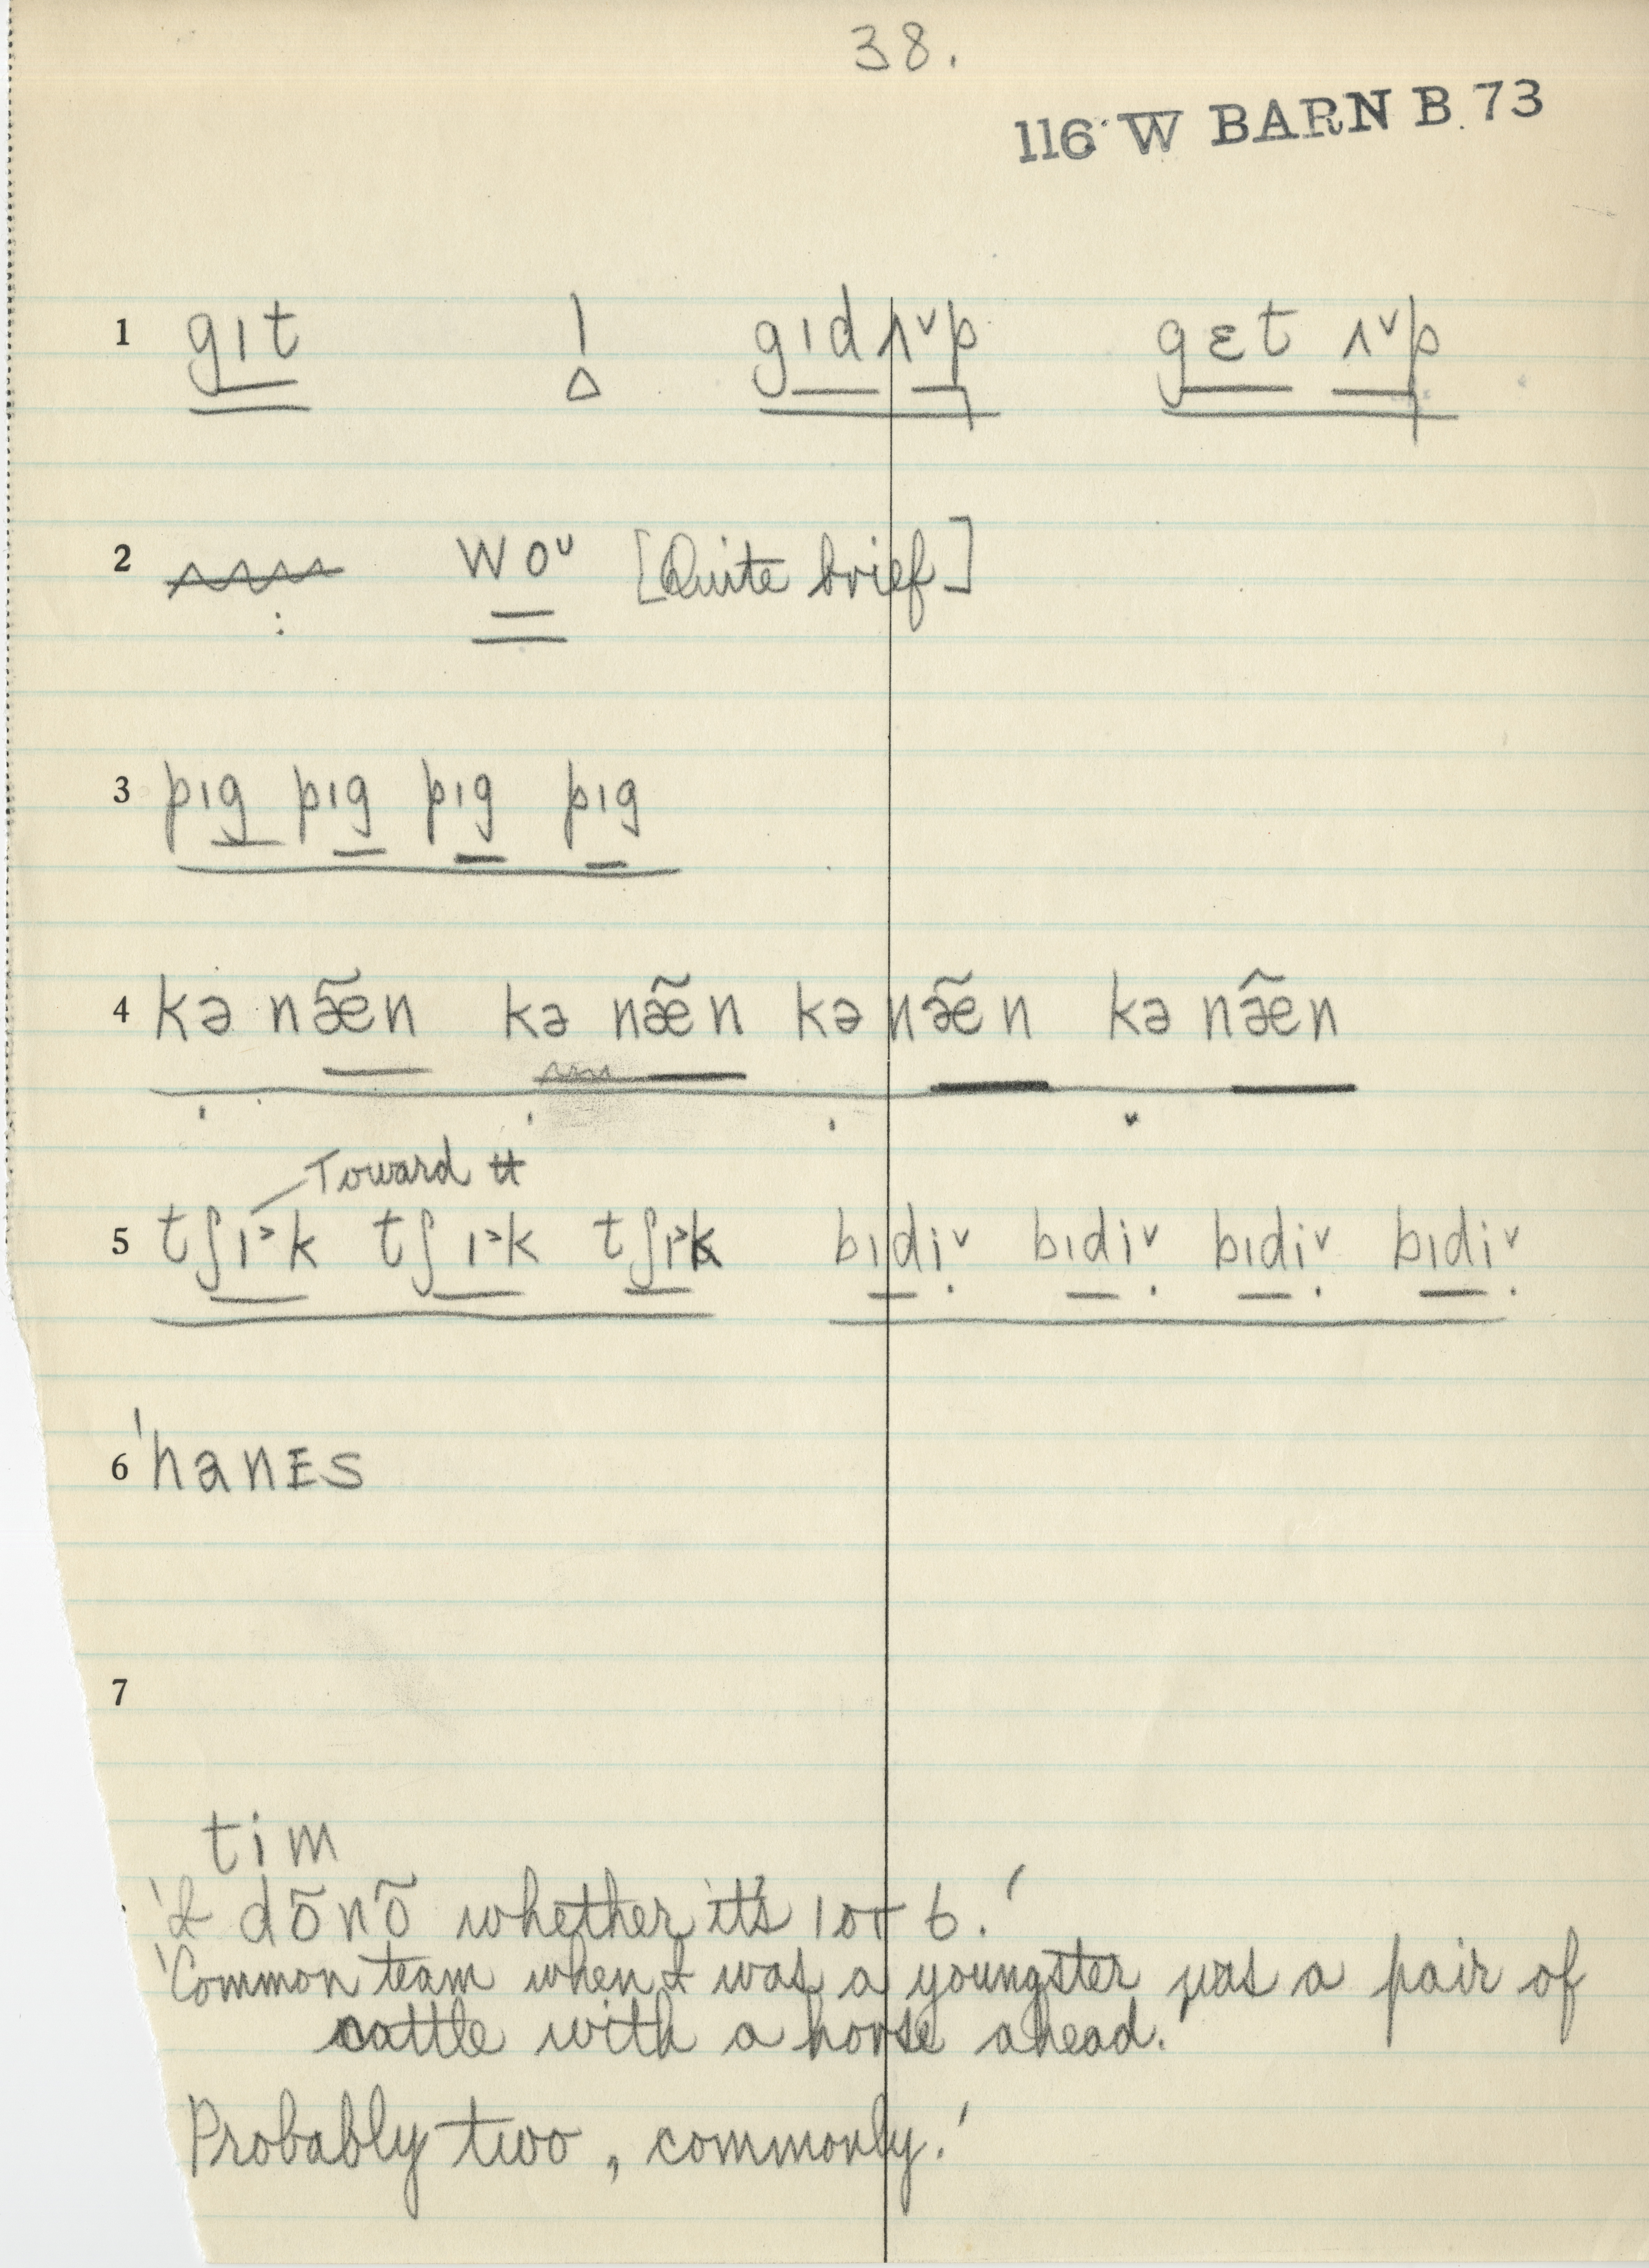 38.
116 W BARN B 73
1 gɪt ! gɪdʌ˅p gɛt ʌ˅p
2 woᴜ [Quite brief]
3 pɪg pɪg pɪg pɪg
4 kə næ̃n kə næ̃n kə næ̃n kə næ̃n
Toward ʉ
5 tʃɪ˃k tʃɪ˃k tʃɪ˃k bɪdi˅ bɪdi˅ bɪdi˅ bɪdi˅
6 'hanɪs
7
tim
'I dõnõ whether it's 1 or 6.'
'Common team when I was a youngster was a pair of
cattle with a horse ahead.
Probably two, commonly.'